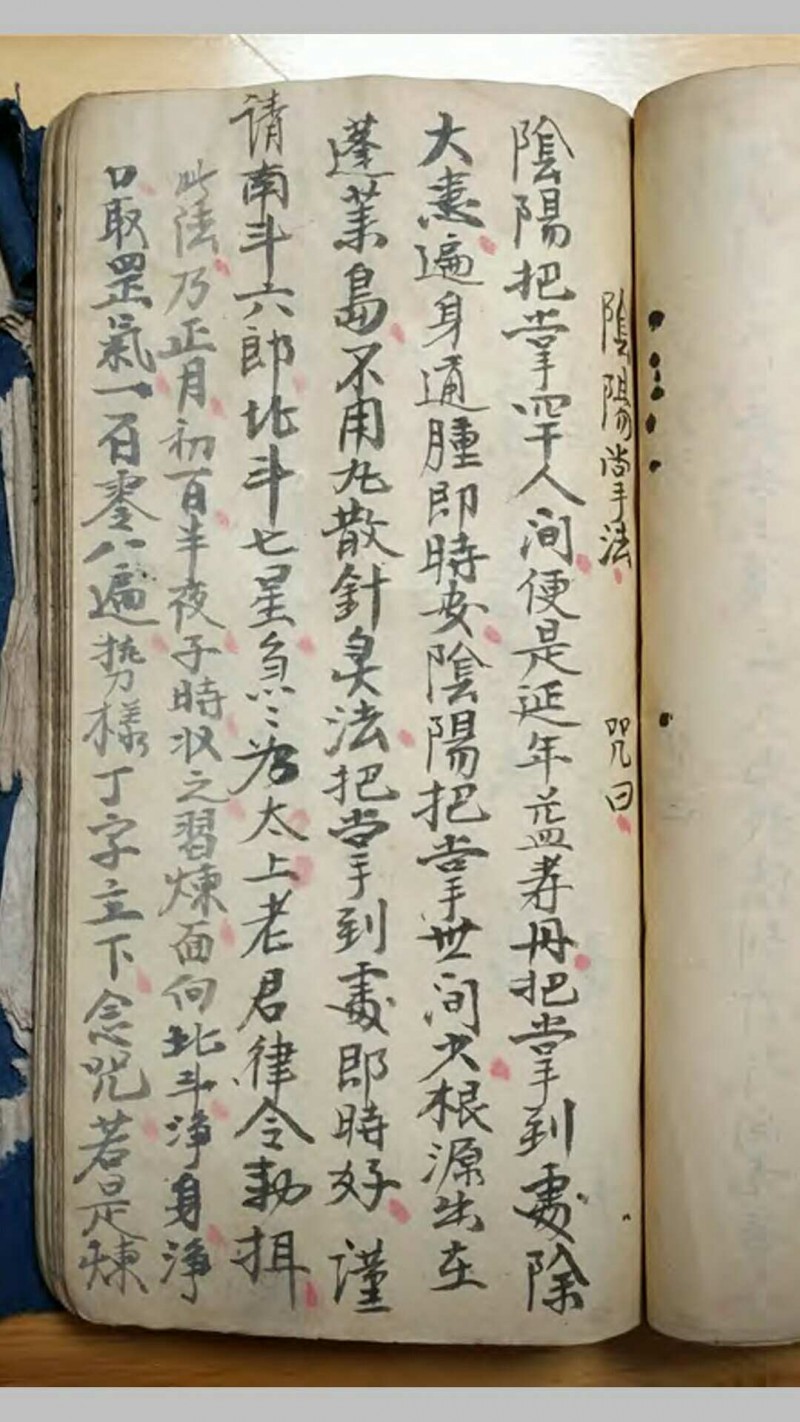 陰陽掌法 咒曰
陰陽把掌罕人间便是延年益寿丹把掌到處除
大患遍身通腫即時安陰陽把掌世间少根源出在
蓬莱島不用丸散針灸法把掌到處即時好 谨
请南斗六郎北斗七星急〻為太上老君律令勅
此法乃正月初一日半夜子時収之習煉面向北斗淨身淨
口取罡氣一百零八遍势樣丁字立下念咒若是煉